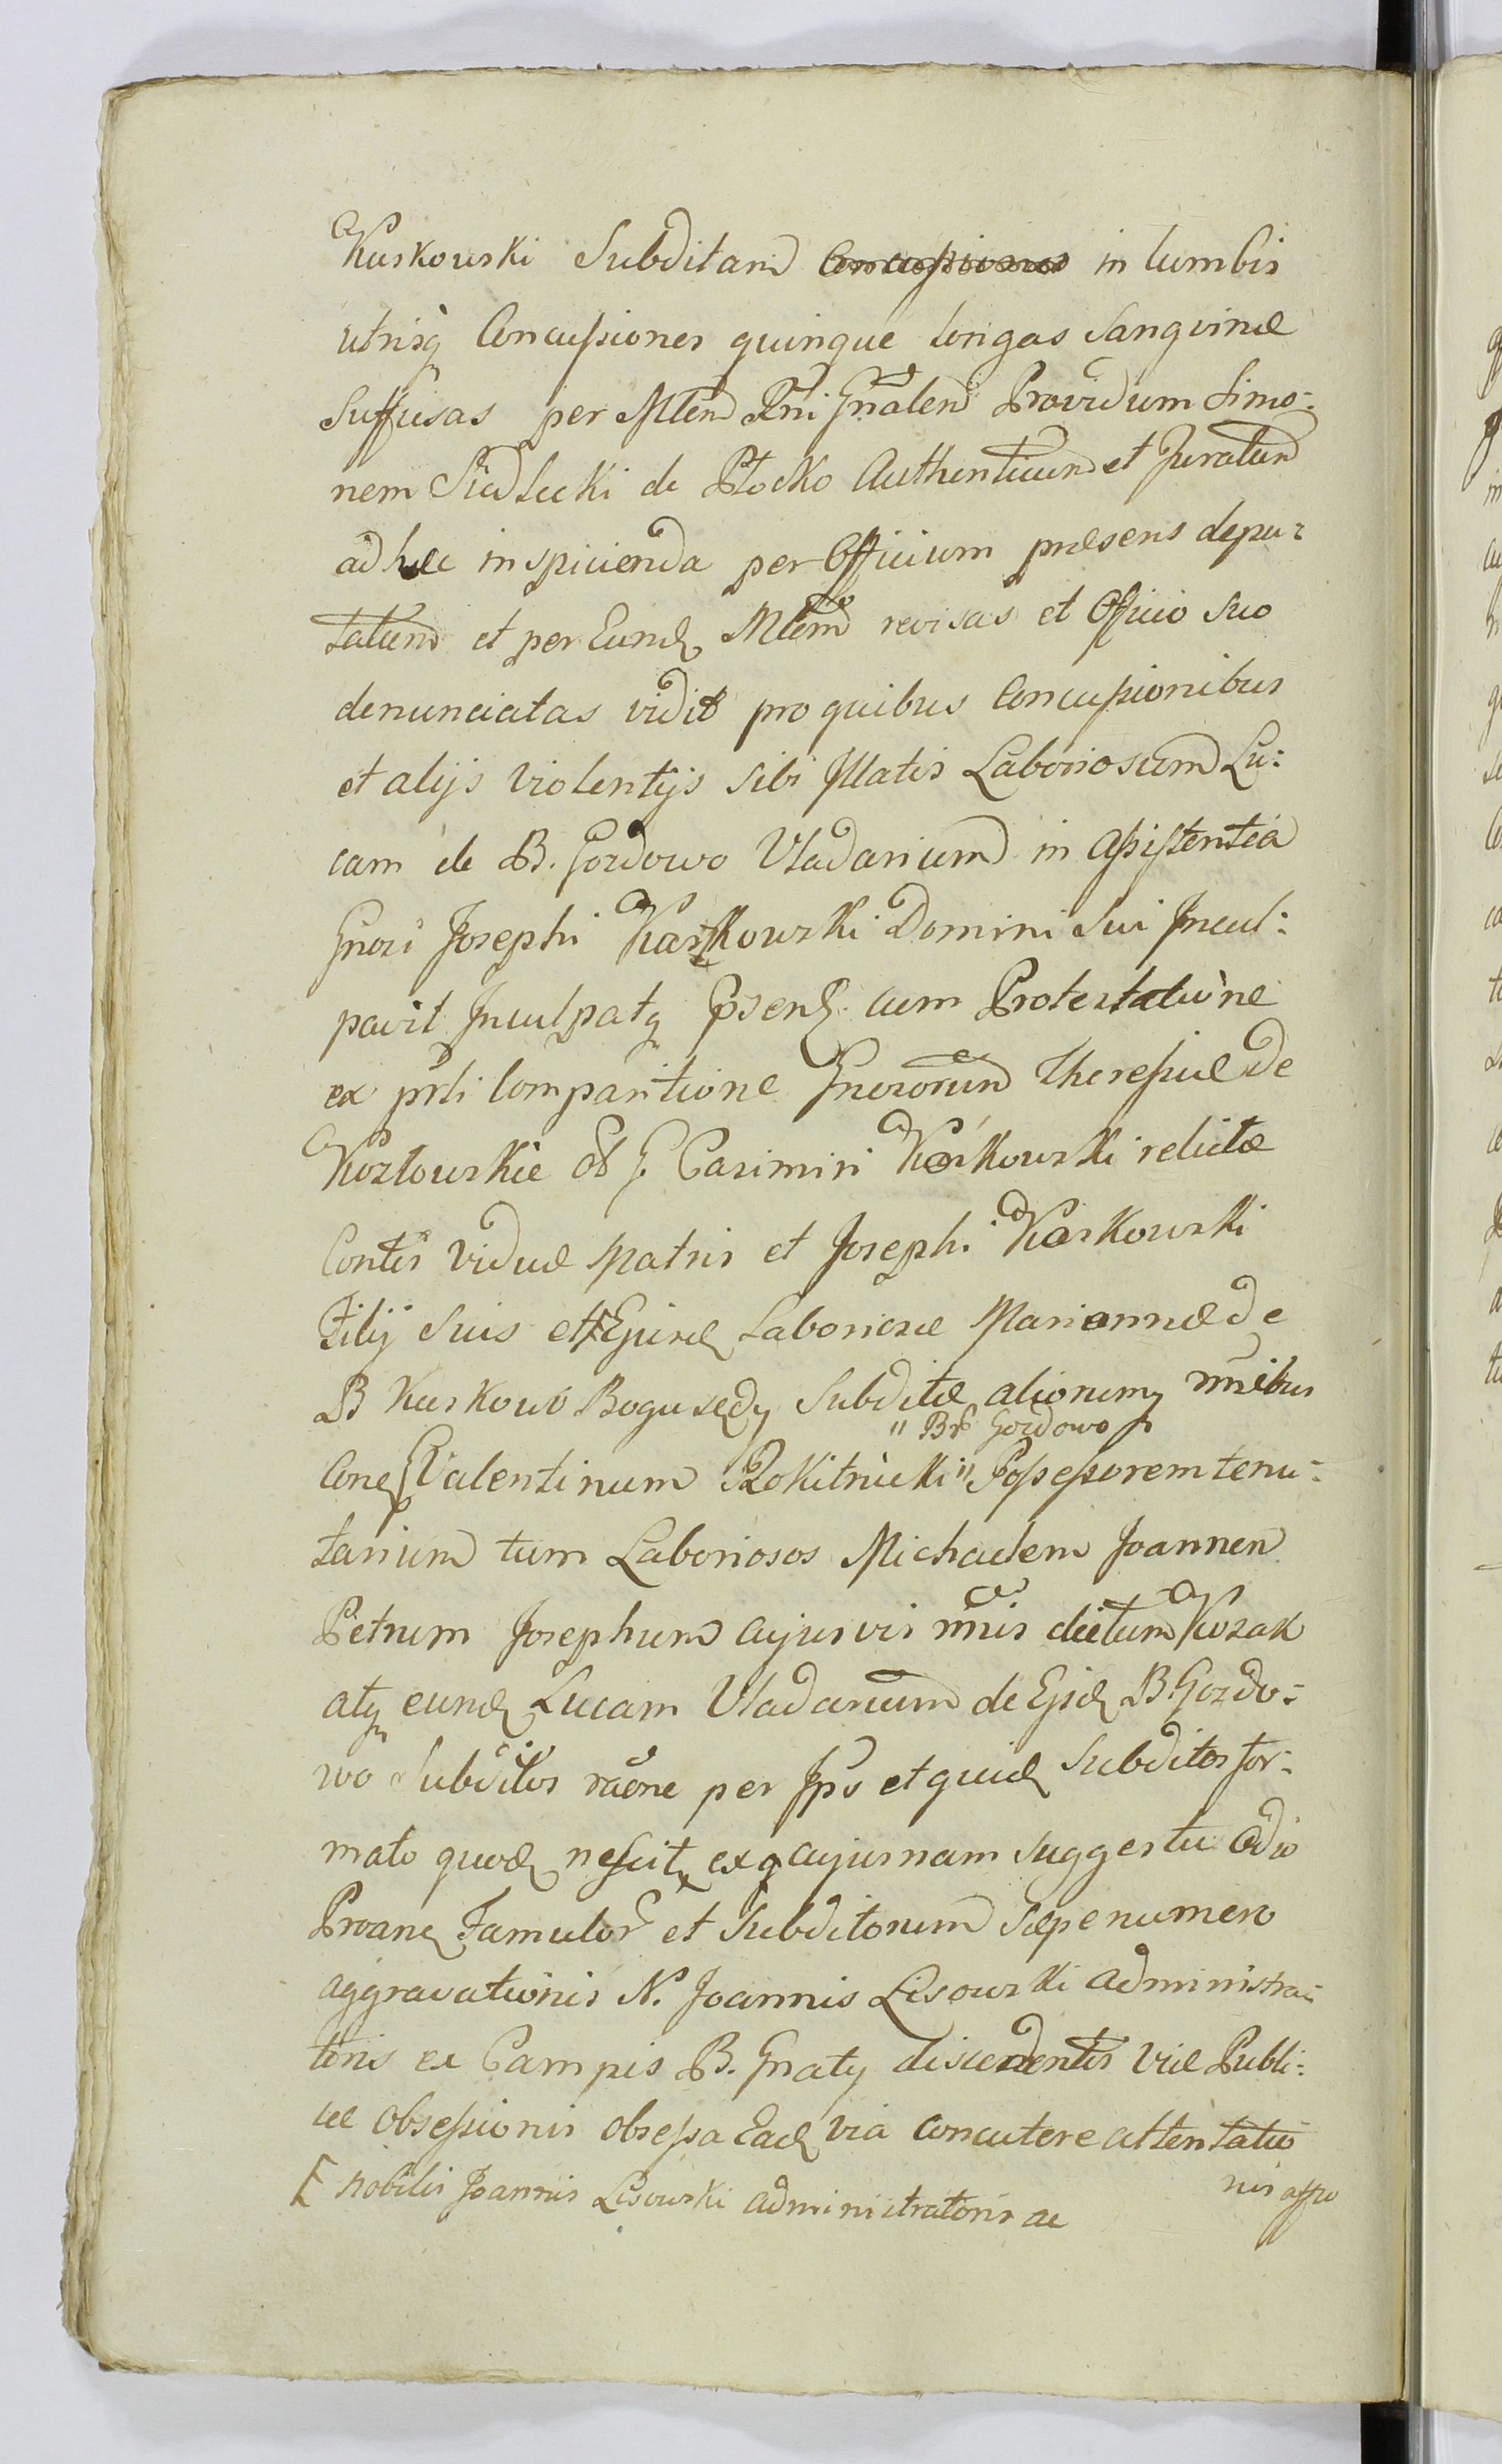 Kuskowski Subditam Concussiones in lumbis
utrisq Concussiones quinque longas Sangvine
Suffusas per Mlem Rni Gnalem Providum Simo:
nem Siedlecki de Płocko Authenticum et Juratum
ad hæc inspicienda per Officium præsens depu:
tatum et per Eund Mlem revisas et Officio Suo
denunciatas vidit pro quibus Concussionibus
et alijs violentijs Sibi Illatis Laboriosum Lu:
cam de B. Gozdowo Vladarium in assistentia
Gnosi Josephi Kaskowski Domini Sui Incul:
pavit Inculpatq psend cum Protestatione
ex prti Comparitione Gnosorum Theressiæ de
Kozłowskie G. Casimiri Kaskowski relictæ
Contis Viduæ Matris et Josephi Kaskowski
Filij Suis et Ejusd Laboriosæ Mariannæ de
B Kuskowo Bogusędy Subditæ alionimq nnibus
" Bs Gozdowo
Cone Valentinum Rokitnicki " Possessorem tenu:
tarium tum Laboriosos Michaelem Joannen
Petrum Josephum cujusvis nnis dictum Kozak
atq eund Lucam Vladarium de Ejsd B. Gozdo:
wo Subditos raōne per Ips et quid Subditos for:
mato quod nescit ex cujusnam suggestu Odio
Proane Famulor et Subditorum Sæpenumero
aggravationis N. Joannis Lisowski administra:
toris ex Campis B. Gnaty discedentis viæ Publi:
cæ obsessionis obsessa Ead via concutere attentatio
nis asso
[ Nobilis Joannis Lisowski administratoris ac